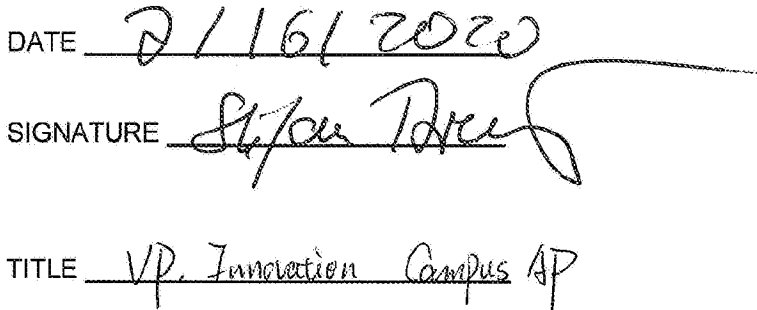 DATE 2/16/2020
SIGNATURE Stefan
TITLE VP. Innovation Campus AP